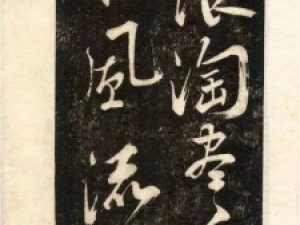 浪淘盡
風流